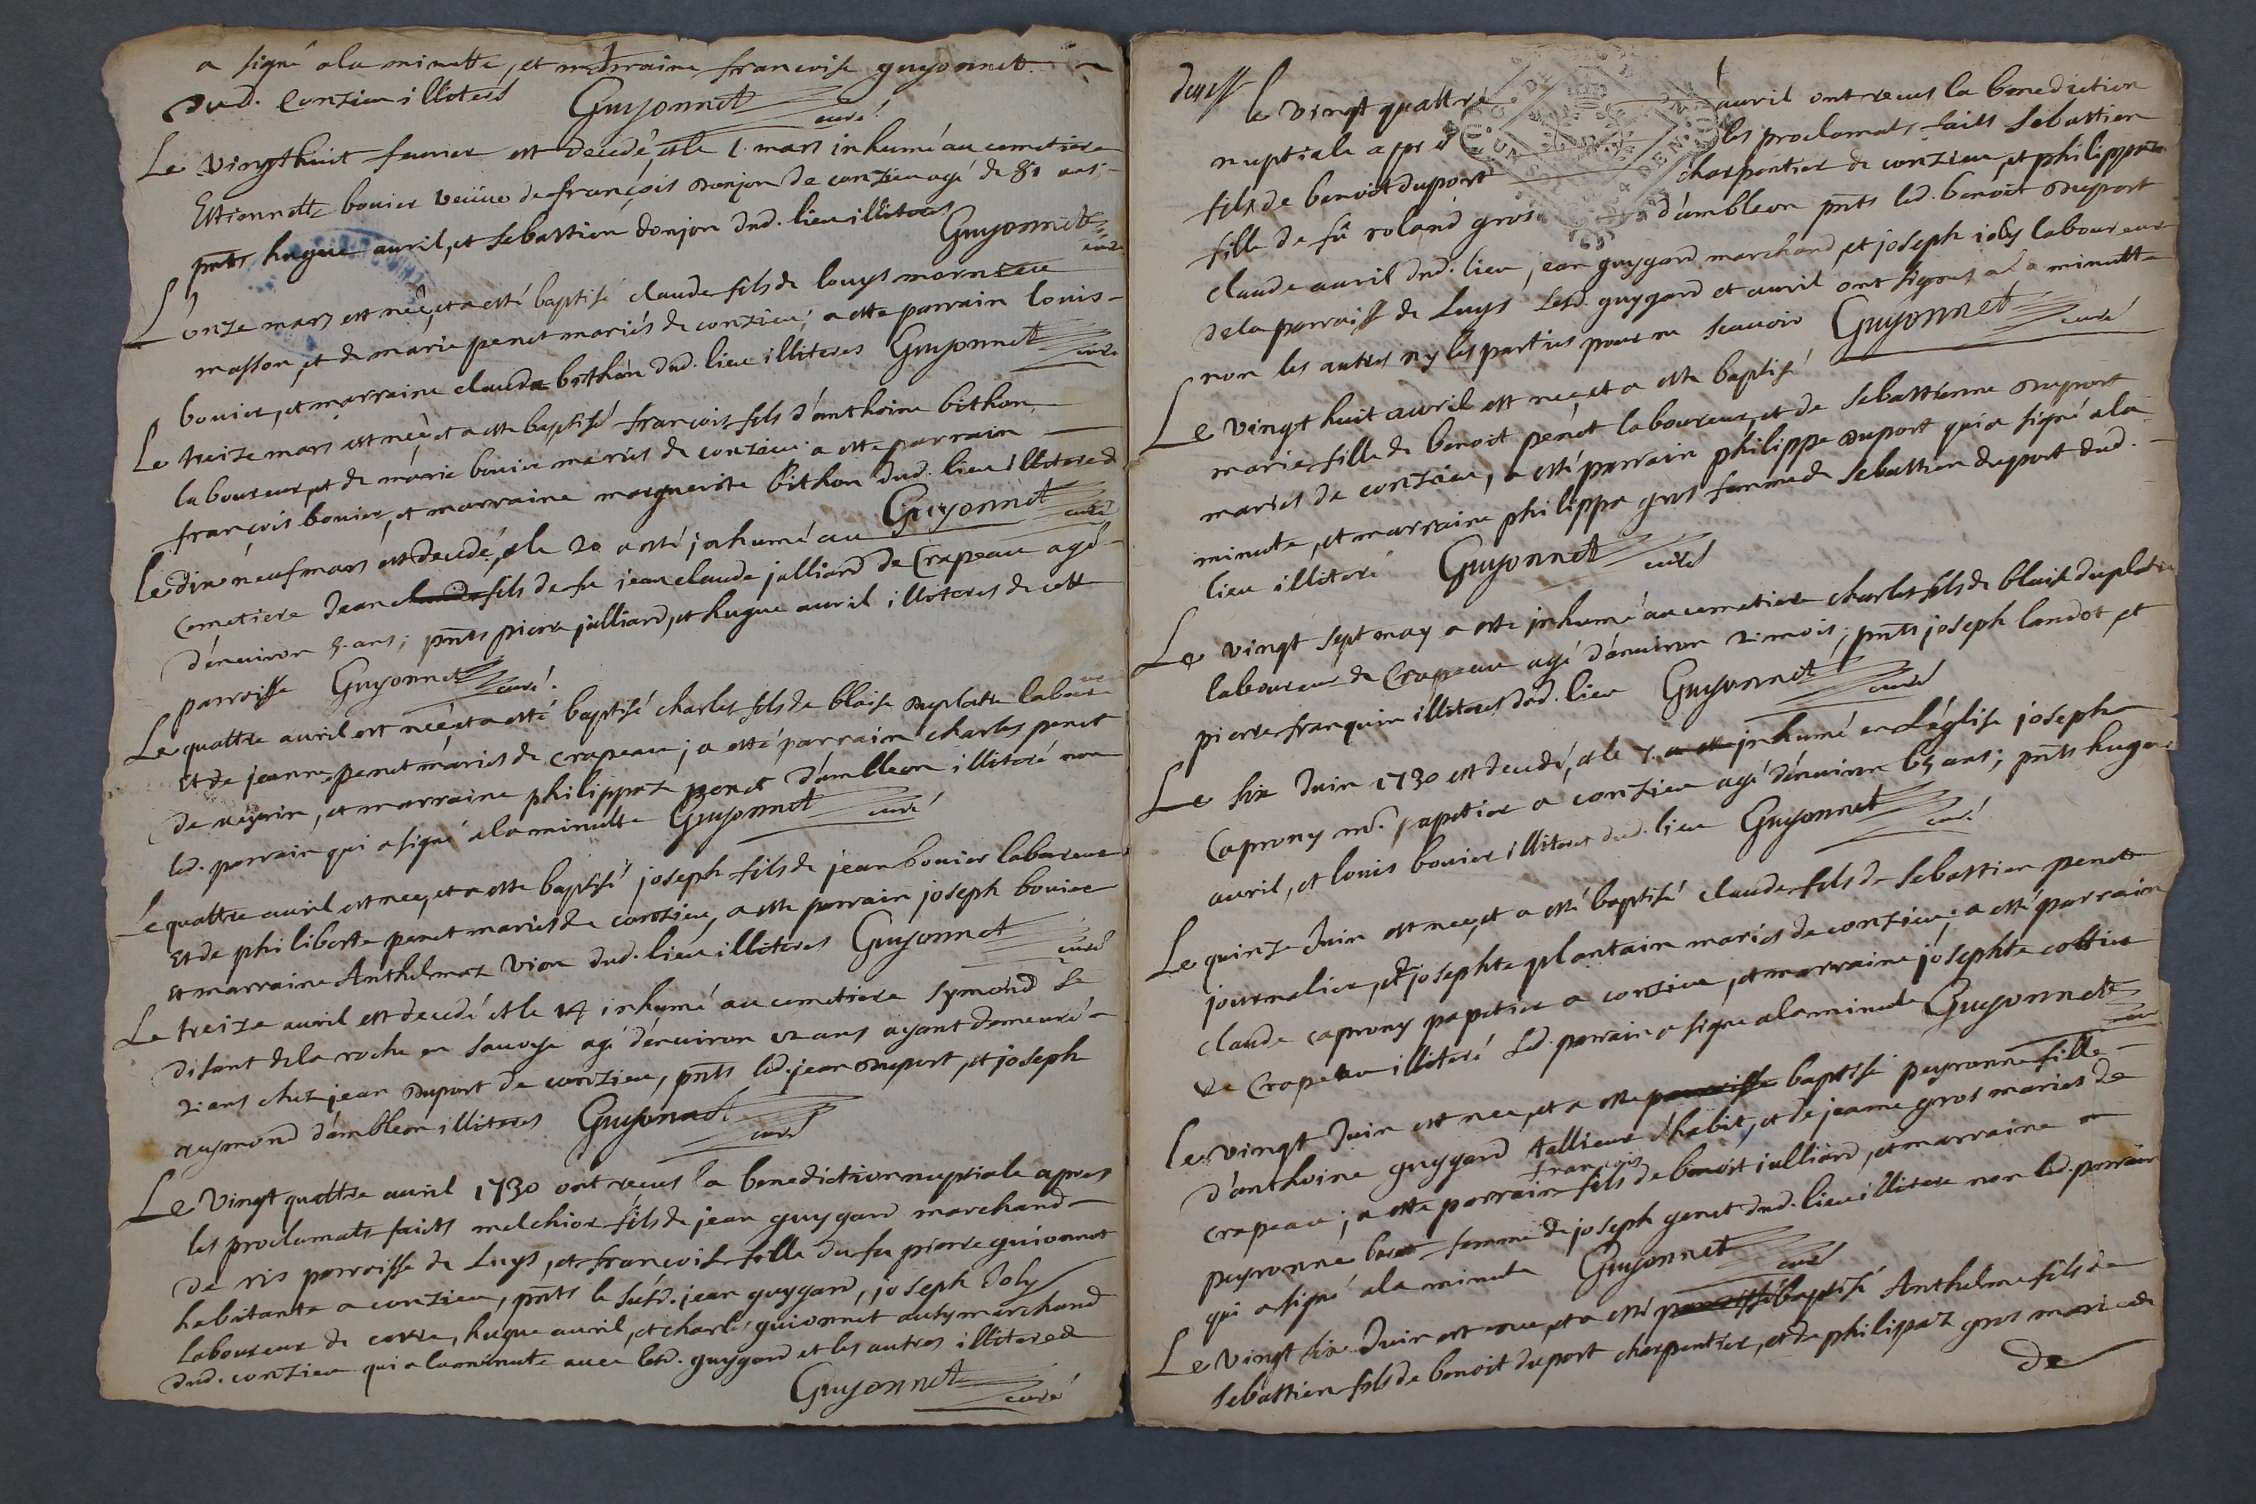 a signé a la minutte, et marraine francoise guyonnet
dud. Conzieu illiteré Guyonnet curé
Le vingthuit feurier est decedé, et le 1. mars inhumé au cemetiere
Estiennette bouier veüve de françois Donjon de conzieu agé de 81 ans
pnts hugue auril, et sebastien donjon dud. lieu illiteres Guyonnet curé
L'onze mars est neé, et a esté baptisé claude fils de louys mornieu
masson, et de marie penet mariés de conzieu; a esté parrain louis
bouier, et marraine clauda bithon dud. lieu illiteres Guyonnet curé
Le treize mars est neé, et a esté baptisé françois fils d'anthoine bithon
laboureur, et de marie bouier mariés de conzieu a esté parrain
françois bouier, et marraine margueritte bithon dud. lieu illiteres
Guyonnet curé
Le dixneuf mars est decedé, et le 20 a esté inhumé au
cemetiere Jean claude fils de fu jean claude julliard de Crapeau agé
d'enuiron 5. ans; pnts pierre julliard, et hugue auril illiteres de cette
parroisse Guyonnet curé.
Le quattre auril est neé, et a esté baptisé charles fils de blaise Duplatre laboureur
Et de jeanne penet mariés de crapeau; a esté parrain charles penet
de, et marraine philippaz penet d'ambleon illiteré non
led. parrain qui a signé a la minutte Guyonnet curé
Le quattre auril est neé, et a esté baptisé joseph fils de jean bouier laboureur
Et de philiberte penet mariés de conzieu, a esté parrain joseph bouier
Et marraine Anthelmaz Vion dud. lieu illiteres Guyonnet curé
Le treize auril est decedé et le 14 inhumé au cemetiere symond se
disant de la roche en sauoye agé d'enuiron ans ayant demeuré
2. ans chez jean Duport de conzieu, pnts led. jean Duport, et joseph
reymond d'ambleon illiteres Guyonnet curé
Le Vingt quattre auril 1730 ont receus la benediction nuptiale apres
les proclamats faicts melchior fils de jean guygard marchand
de ris parroisse de Luys, et francoise fille du fu pierre guionnet
habitante a conzieu, pnts le susd. jean guygard, joseph Joly
Laboureur de, hugue auril, et charles guionnet marchand
dud. conzieu qui a la minute auec lesd. guygard et les autres illiteres
Guyonnet curé
le vingt quattre auril ont receus la benediction
nuptiale apres les proclamats faits sebastien
fils de benoit duport charpentier de conzieu, et philippaz
fille de fû roland gros d'ambleon pnts led. benoit Duport
claude auril dud. lieu, jean guygard marchand, et joseph joly laboureur
de la parroisse de Luys lesd. guygard et auril ont signés a la minutte
non les autres ny les parties pour ne scauoir Guyonnet curé
Le vingt huit auril est neé et a esté baptisé
marie fille de benoit penet laboureur, et de sebastienne Duport
mariés de conzieu, a esté parrain philippe Duport qui a signé a la
minute, et marraine philippa gros femme de sebastien duport dud.
lieu illiteré Guyonnet curé
Le vingt sept may a esté inhumé au cemetiere charles fils de blaise duplatre
laboureur de Crapeau agé d'enuiron 2. mois; pnts joseph landot et
pierre franquin illiteres dud. lieu Guyonnet curé
Le six Juin 1730 est decedé, et le 7. a esté inhumé en L'église joseph
Caprony mr. papetier a conzieu agé d'enuiron 65 ans; pnts hugue
auril, et louis bouier illiteres dud. lieu Guyonnet curé
Le quinze Juin est neé, et a esté baptisé claude fils de sebastien penet
journalier, et josephte plantain mariés de conzieu; a esté parrain
claude caprony papetier a conzieu, et marraine josephte cottier
de Crapeau illiteré led. parrain a signe a la minute Guyonnet curé
Le vingt Juin est neé, et a esté parroisse baptisé peyronne fille
d'anthoine guygard tallieur d'habit, et de jeanne gros mariés de
crapeau; a esté parrain françois fils de benoit julliard, et marraine
peyronne femme de joseph genet dud. lieu illitere non led. parrain
qui a signé a la minute Guyonnet curé
Le vingt six Juin est neé, et a esté baptisé Anthelme fils de
sebastien fils de benoit duport charpentier, et de philipaz gros mariés
de